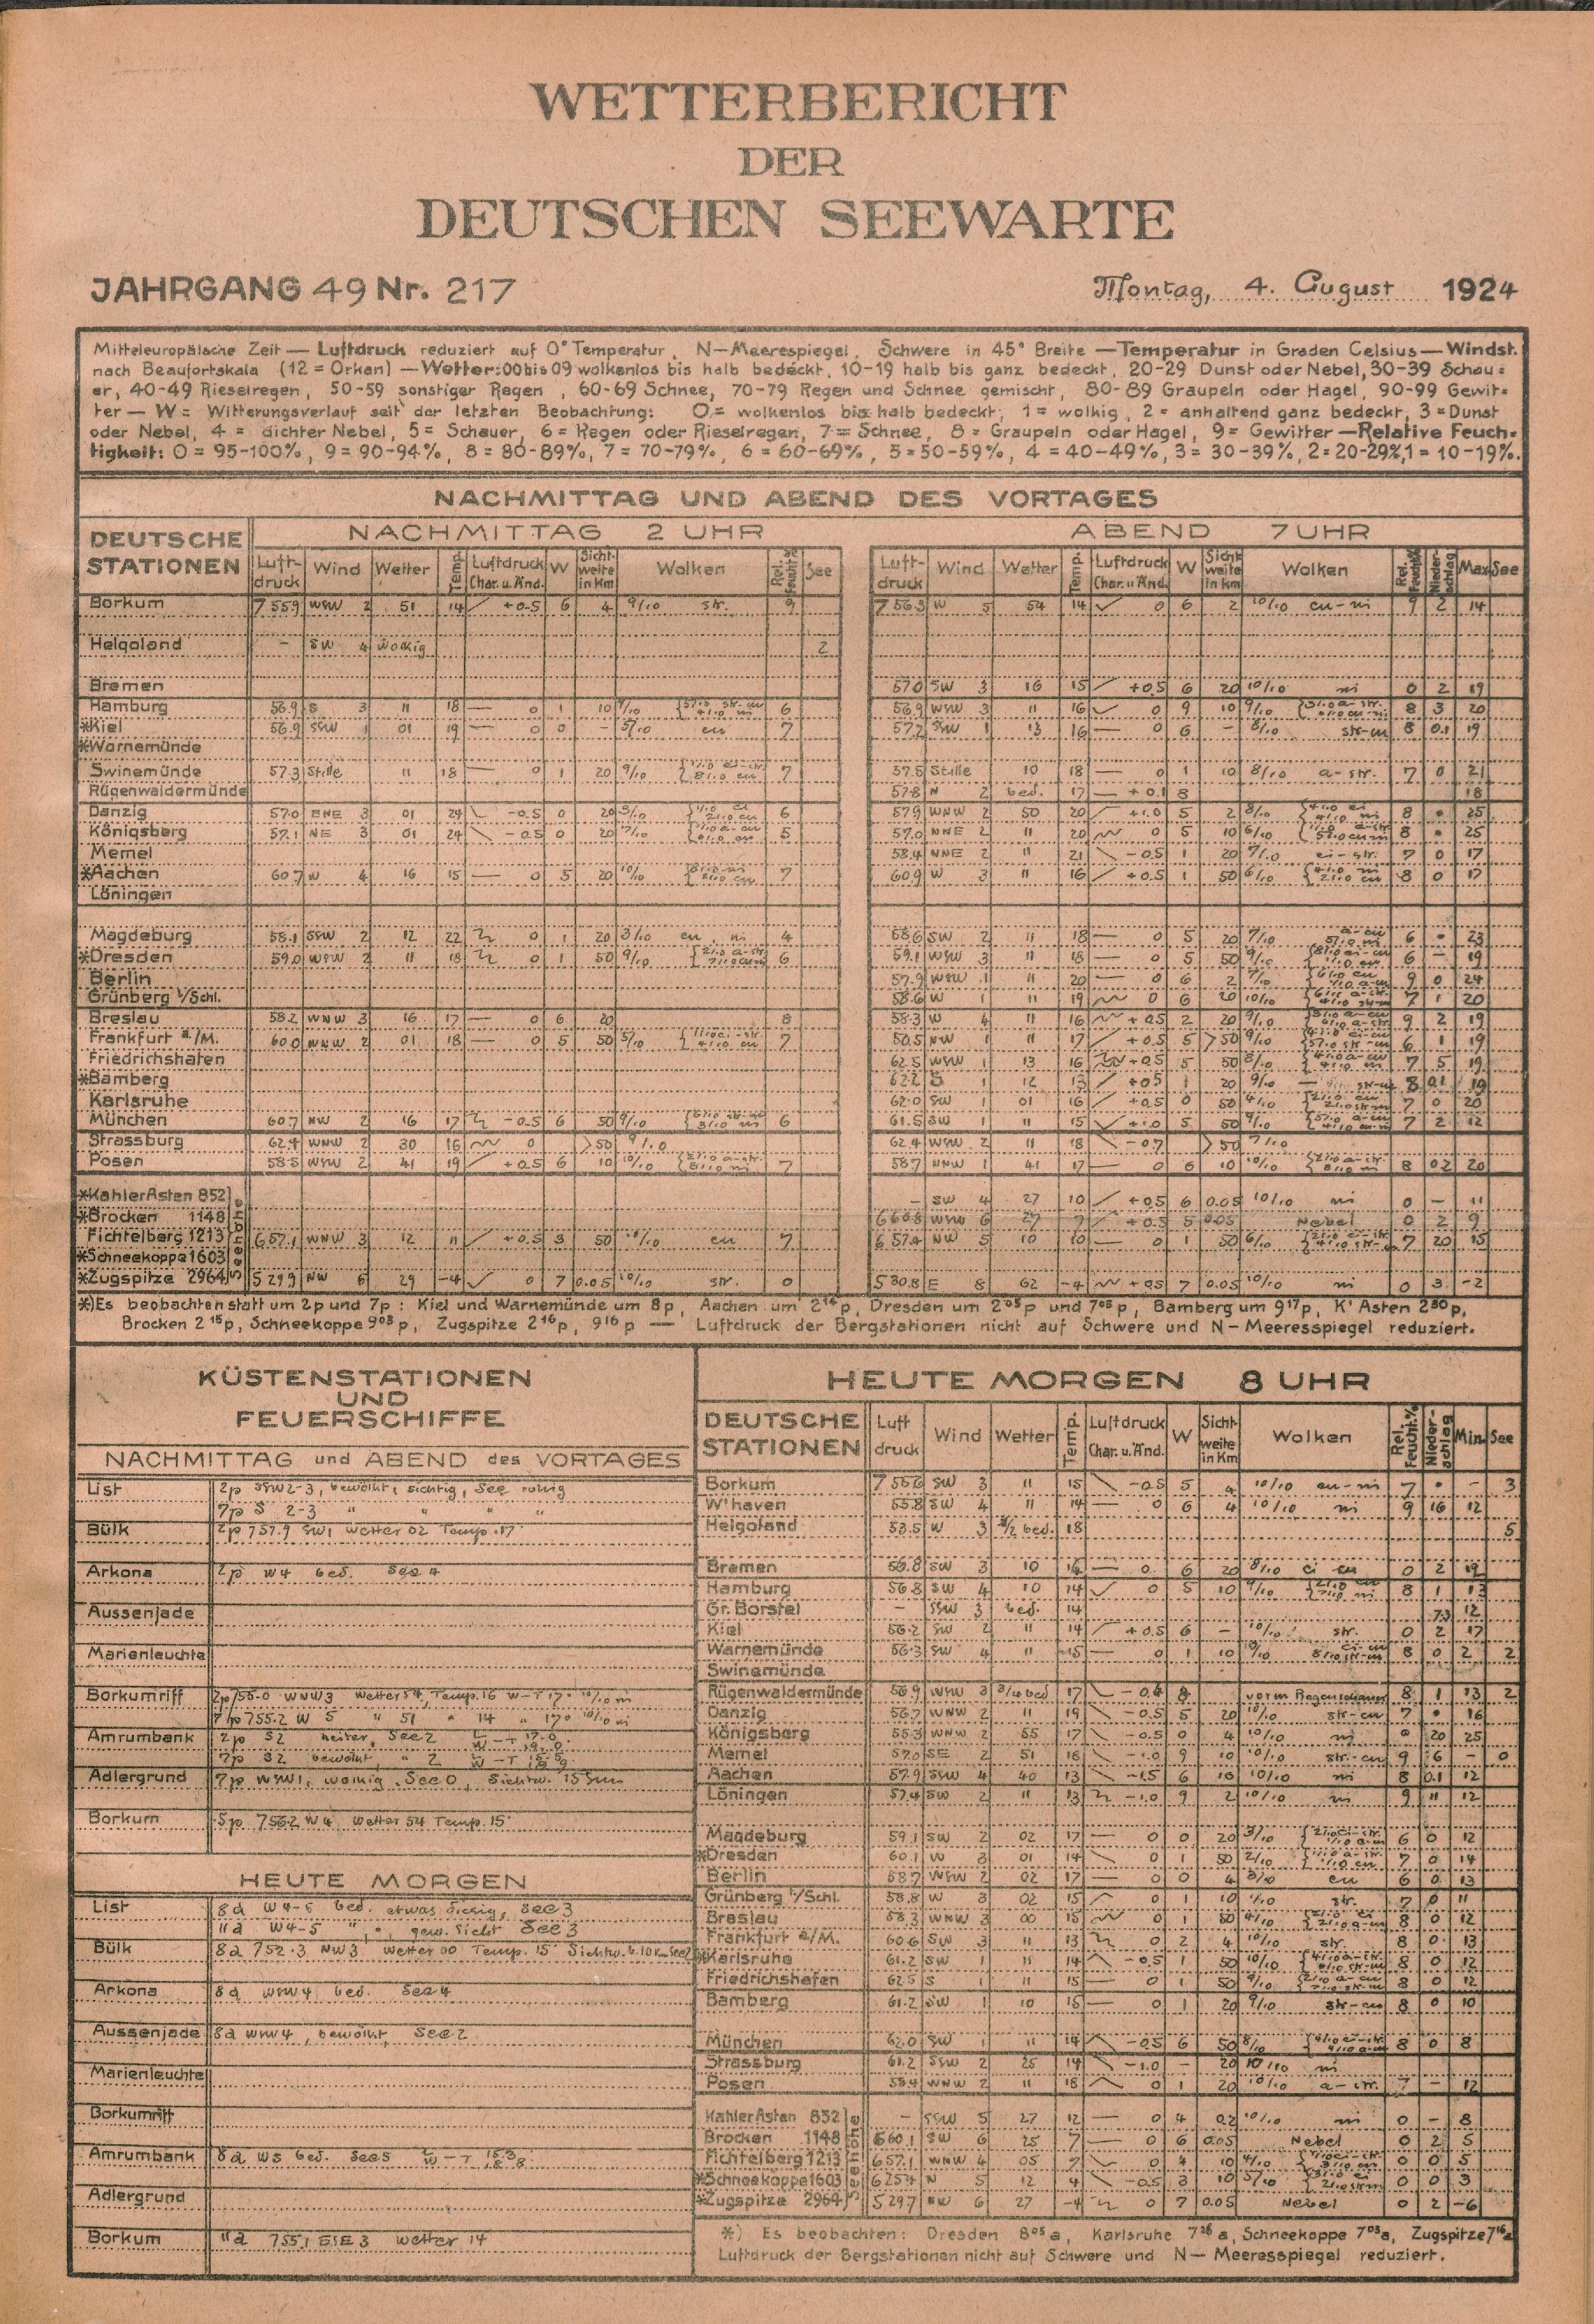 WETTERBERICHT
DER
DEUTSCHEN SEEWARTE
JAHRGANG 49 Nr. 217
Montag, 4. August 1924
Mitteleuropäische Zeit — Luftdruck reduziert auf 0° Temperatur, N—Meerespiegel, Schwere in 45° Breite — Temperatur in Graden Celsius — Windst.
nach Beaufortskala (12 = Orkan) — Wetter: 00 bis 09 wolkenlos bis halb bedeckt, 10-19 halb bis ganz bedeckt, 20-29 Dunst oder Nebel, 30-39 Schau=
er, 40-49 Rieselregen, 50-59 sonstiger Regen, 60-69 Schnee, 70-79 Regen und Schnee gemischt, 80-89 Graupeln oder Hagel, 90-99 Gewit=
ter — W = Witterungsverlauf seit der letzten Beobachtung: 0 = wolkenlos bis halb bedeckt, 1 = wolkig, 2 = anhaltend ganz bedeckt, 3 = Dunst
oder Nebel, 4 = dichter Nebel, 5 = Schauer, 6 = Regen oder Rieselregen, 7 = Schnee, 8 = Graupeln oder Hagel, 9 = Gewitter — Relative Feuch=
tigkeit: 0 = 95-100%, 9 = 90-94%, 8 = 80-89%, 7 = 70-79%, 6 = 60-69%, 5 = 50-59%, 4 = 40-49%, 3 = 30-39%, 2 = 20-29%, 1 = 10-19%.
NACHMITTAG UND ABEND DES VORTAGES
DEUTSCHE STATIONEN
NACHMITTAG 2 UHR
ABEND 7 UHR
Luft-druck Wind Wetter Temp. Luftdruck Char. u. Änd. W Sicht-weite in Km Wolken Rel. Feucht.% See
Luft-druck Wind Wetter Temp. Luftdruck Char. u. Änd. W Sicht-weite in Km Wolken Rel. Feucht.% Nieder-schlag Max See
Borkum 755.9 WSW 2 51 14 +0.5 6 4 9/10 str. 9 756.3 W 5 54 14 0 6 2 10/10 cu-ni 9 2 14
Helgoland - SW 4 wolkig 2
Bremen 57.0 SW 3 16 15 +0.5 6 20 10/10 ni 0 2 19
Hamburg 56.9 S 3 11 18 0 1 10 6 56.9 WSW 3 11 16 0 9 10 9/10 8 3 20
*Kiel 56.9 SSW 1 01 19 0 0 - 5/10 cu 7 57.2 SSW 1 13 16 0 6 - 8/10 str-cu 8 0.1 19
*Warnemünde
Swinemünde 57.3 Stille 11 18 0 1 20 9/10 7 57.5 Stille 10 18 0 1 10 8/10 a-str. 7 0 21
Rügenwaldermünde 57.8 N 2 bed. 17 +0.1 8 18
Danzig 57.0 ENE 3 01 24 -0.5 0 20 3/10 6 57.9 WNW 2 50 20 +1.0 5 2 8/10 8 • 25
Königsberg 57.1 NE 3 01 24 -0.5 0 20 5 57.0 NNE 2 11 20 0 5 10 6/10 8 • 25
Memel 58.4 NNE 2 11 21 -0.5 1 20 7/10 ci-str. 7 0 17
*Aachen 60.7 W 4 16 15 0 5 20 10/10 7 60.9 W 3 11 16 +0.5 1 50 6/10 8 0 17
Löningen
Magdeburg 58.1 SSW 2 12 22 0 1 20 3/10 cu ni 4 58.6 SW 2 11 18 0 5 20 7/10 6 • 23
*Dresden 59.0 WSW 2 11 18 0 1 50 9/10 6 59.1 WSW 3 11 18 0 5 50 9/10 6 — 19
Berlin 57.9 WSW 1 11 20 0 6 2 7/10 9 0 24
Grünberg i/Schl. 58.6 W 1 11 19 0 6 20 10/10 7 1 20
Breslau 58.2 WNW 3 16 17 0 6 20 8 58.3 W 4 11 16 +0.5 2 20 9/10 9 2 19
Frankfurt a/M. 60.0 WNW 2 01 18 0 5 50 5/10 7 NW 1 11 17 +0.5 5 >50 9/10 6 1 19
Friedrichshafen 62.5 WSW 1 13 16 +0.5 5 50 8/10 7 5 19
*Bamberg 62.2 S 1 12 13 +0.5 1 20 9/10 str-cu 8 0.1 19
Karlsruhe 62.0 SW 1 01 16 +0.5 0 50 4/10 7 0 20
München 60.7 NW 2 16 17 -0.5 6 50 9/10 6 61.5 SW 1 11 15 +1.0 5 50 9/10 7 2 12
Strassburg 62.4 WNW 2 30 16 0 >50 9/10 62.4 WSW 2 11 18 -0.7 >50 7/10
Posen 58.5 WSW 2 41 19 +0.5 6 10 10/10 7 58.7 NNW 1 41 17 0 6 10 10/10 8 0.2 20
Seehöhe
*Kahler Asten 852 - SW 4 27 10 +0.5 6 0.05 10/10 ni 0 — 11
*Brocken 1148 660.8 WSW 6 27 7 +0.5 5 0.05 Nebel 0 2 9
Fichtelberg 1213 657.1 WNW 3 12 11 +0.5 3 50 10/10 cu 7 657.4 NW 5 10 10 0 1 50 6/10 7 20 15
*Schneekoppe 1603
*Zugspitze 2964 529.9 NW 6 29 -4 0 7 0.05 10/10 str. 0 530.8 E 8 62 -4 +0.5 7 0.05 10/10 ni 0 3 -2
*) Es beobachten statt um 2p und 7p: Kiel und Warnemünde um 8p, Aachen um 2 14 p, Dresden um 2 05 p und 7 05 p, Bamberg um 9 17 p, K' Asten 2 30 p,
Brocken 2 15 p, Schneekoppe 9 03 p, Zugspitze 2 16 p, 9 16 p — Luftdruck der Bergstationen nicht auf Schwere und N—Meeresspiegel reduziert.
KÜSTENSTATIONEN
UND
FEUERSCHIFFE
NACHMITTAG und ABEND des VORTAGES
List 2p SSW 2-3, bewölkt, sichtig, See ruhig
7p S 2-3 " " "
Bülk 2p 757.9 SW1 Wetter 02 Temp. 17
Arkona 2p W4 bed. See 4
Aussenjade
Marienleuchte
Borkumriff 2p 755.0 WNW3 Wetter 54, Temp. 16 W-T 17° 10/10 ni
7p 755.2 W 5 " 51 " 14 " 17° 10/10 ni
Amrumbank 2p S2 heiter, See 2
7p S2 bewölkt, " 2
Adlergrund 7p WSW1, wolkig, See 0, Sichtw. 15 Sm
Borkum 5p 756.2 W4 Wetter 54 Temp. 15
HEUTE MORGEN
List 8a W 4-5 bed. etwas diesig, See 3
11a W4-5 " , gew. Sicht See 3
Bülk 8a 752.3 NW3 Wetter 00 Temp. 15
Arkona 8a WSW4 bed. See 4
Aussenjade 8a WSW4, bewölkt, See 2
Marienleuchte
Borkumriff
Amrumbank 8a W5 bed. See 5
Adlergrund
Borkum 11a 755.1 ESE 3 Wetter 14
HEUTE MORGEN 8 UHR
DEUTSCHE STATIONEN Luft druck Wind Wetter Temp. Luftdruck Char. u. Änd. W Sicht-weite in Km Wolken Rel. Feucht.% Nieder-schlag Min See
Borkum 755.6 SW 3 11 15 -0.5 5 4 10/10 cu-ni 7 • - 3
W'haven 55.8 SW 4 11 14 0 6 4 10/10 ni 9 16 12
Helgoland 53.5 W 3 bed. 18 5
Bremen 56.8 SW 3 10 14 0 6 20 8/10 ci cu 0 2 12
Hamburg 56.8 SW 4 10 14 0 5 10 9/10 8 1 13
Gr. Borstel - SSW 3 bed. 14 12
Kiel 56.2 SW 2 11 14 +0.5 6 - 10/10 str. 0 2 17
Warnemünde 56.3 SW 4 11 15 0 1 10 8 0 2 2
Swinemünde
Rügenwaldermünde 56.9 WSW 3 3/4 bed 17 -0.4 8 vorm Regenschauer 8 1 13 2
Danzig 56.7 WNW 2 11 19 -0.5 5 20 10/10 str-cu 7 • 16
Königsberg 55.3 WNW 2 65 17 -0.5 0 4 10/10 ni 20 25
Memel 57.0 SE 2 51 18 -1.0 9 10 10/10 str.-cu 9 6 - 0
Aachen 57.9 SSW 4 40 13 -1.5 6 10 10/10 ni 8 0.1 12
Löningen 57.4 SW 2 11 13 -1.0 9 2 10/10 ni 9 11 12
Magdeburg 59.1 SW 2 02 17 0 0 20 3/10 6 0 12
*Dresden 60.1 W 3 01 14 0 1 50 2/10 7 0 14
Berlin 58.7 WSW 2 02 17 0 0 4 3/10 cu 6 0 13
Grünberg i/Schl. 58.8 W 3 02 15 0 1 10 str. 7 0 11
Breslau 58.3 WNW 3 00 15 0 1 50 4/10 8 0 12
Frankfurt a/M. 60.6 SW 3 11 13 0 2 4 10/10 str. 8 0 13
*Karlsruhe 61.2 SW 1 11 14 -0.5 1 50 10/10 8 0 12
Friedrichshafen 62.5 S 1 11 15 0 1 50 9/10 8 0 12
Bamberg 61.2 SW 1 10 15 0 1 20 9/10 str-cu 8 0 10
München 62.0 SW 1 11 14 -0.5 6 50 8/10 8 0 8
Strassburg 61.2 SSW 2 25 14 -1.0 - 20 10/10 ni
Posen 58.4 WNW 2 11 18 0 1 20 10/10 a-str. 7 — 12
Seehöhe
Kahler Asten 852 - SSW 5 27 12 0 4 0.2 10/10 ni 0 — 8
Brocken 1148 660.1 SW 6 25 7 0 6 0.05 Nebel 0 2 5
Fichtelberg 1213 657.1 WNW 4 05 7 0 4 10 4/10 0 0 5
*Schneekoppe 1603 625.4 N 5 12 4 -0.5 3 10 5/10 0 0 3
*Zugspitze 2964 529.7 6 27 -4 0 7 0.05 Nebel 0 2 -6
*) Es beobachten: Dresden 8 05 a, Karlsruhe 7 26 a, Schneekoppe 7 03 a, Zugspitze 7 16 a
Luftdruck der Bergstationen nicht auf Schwere und N—Meeresspiegel reduziert.